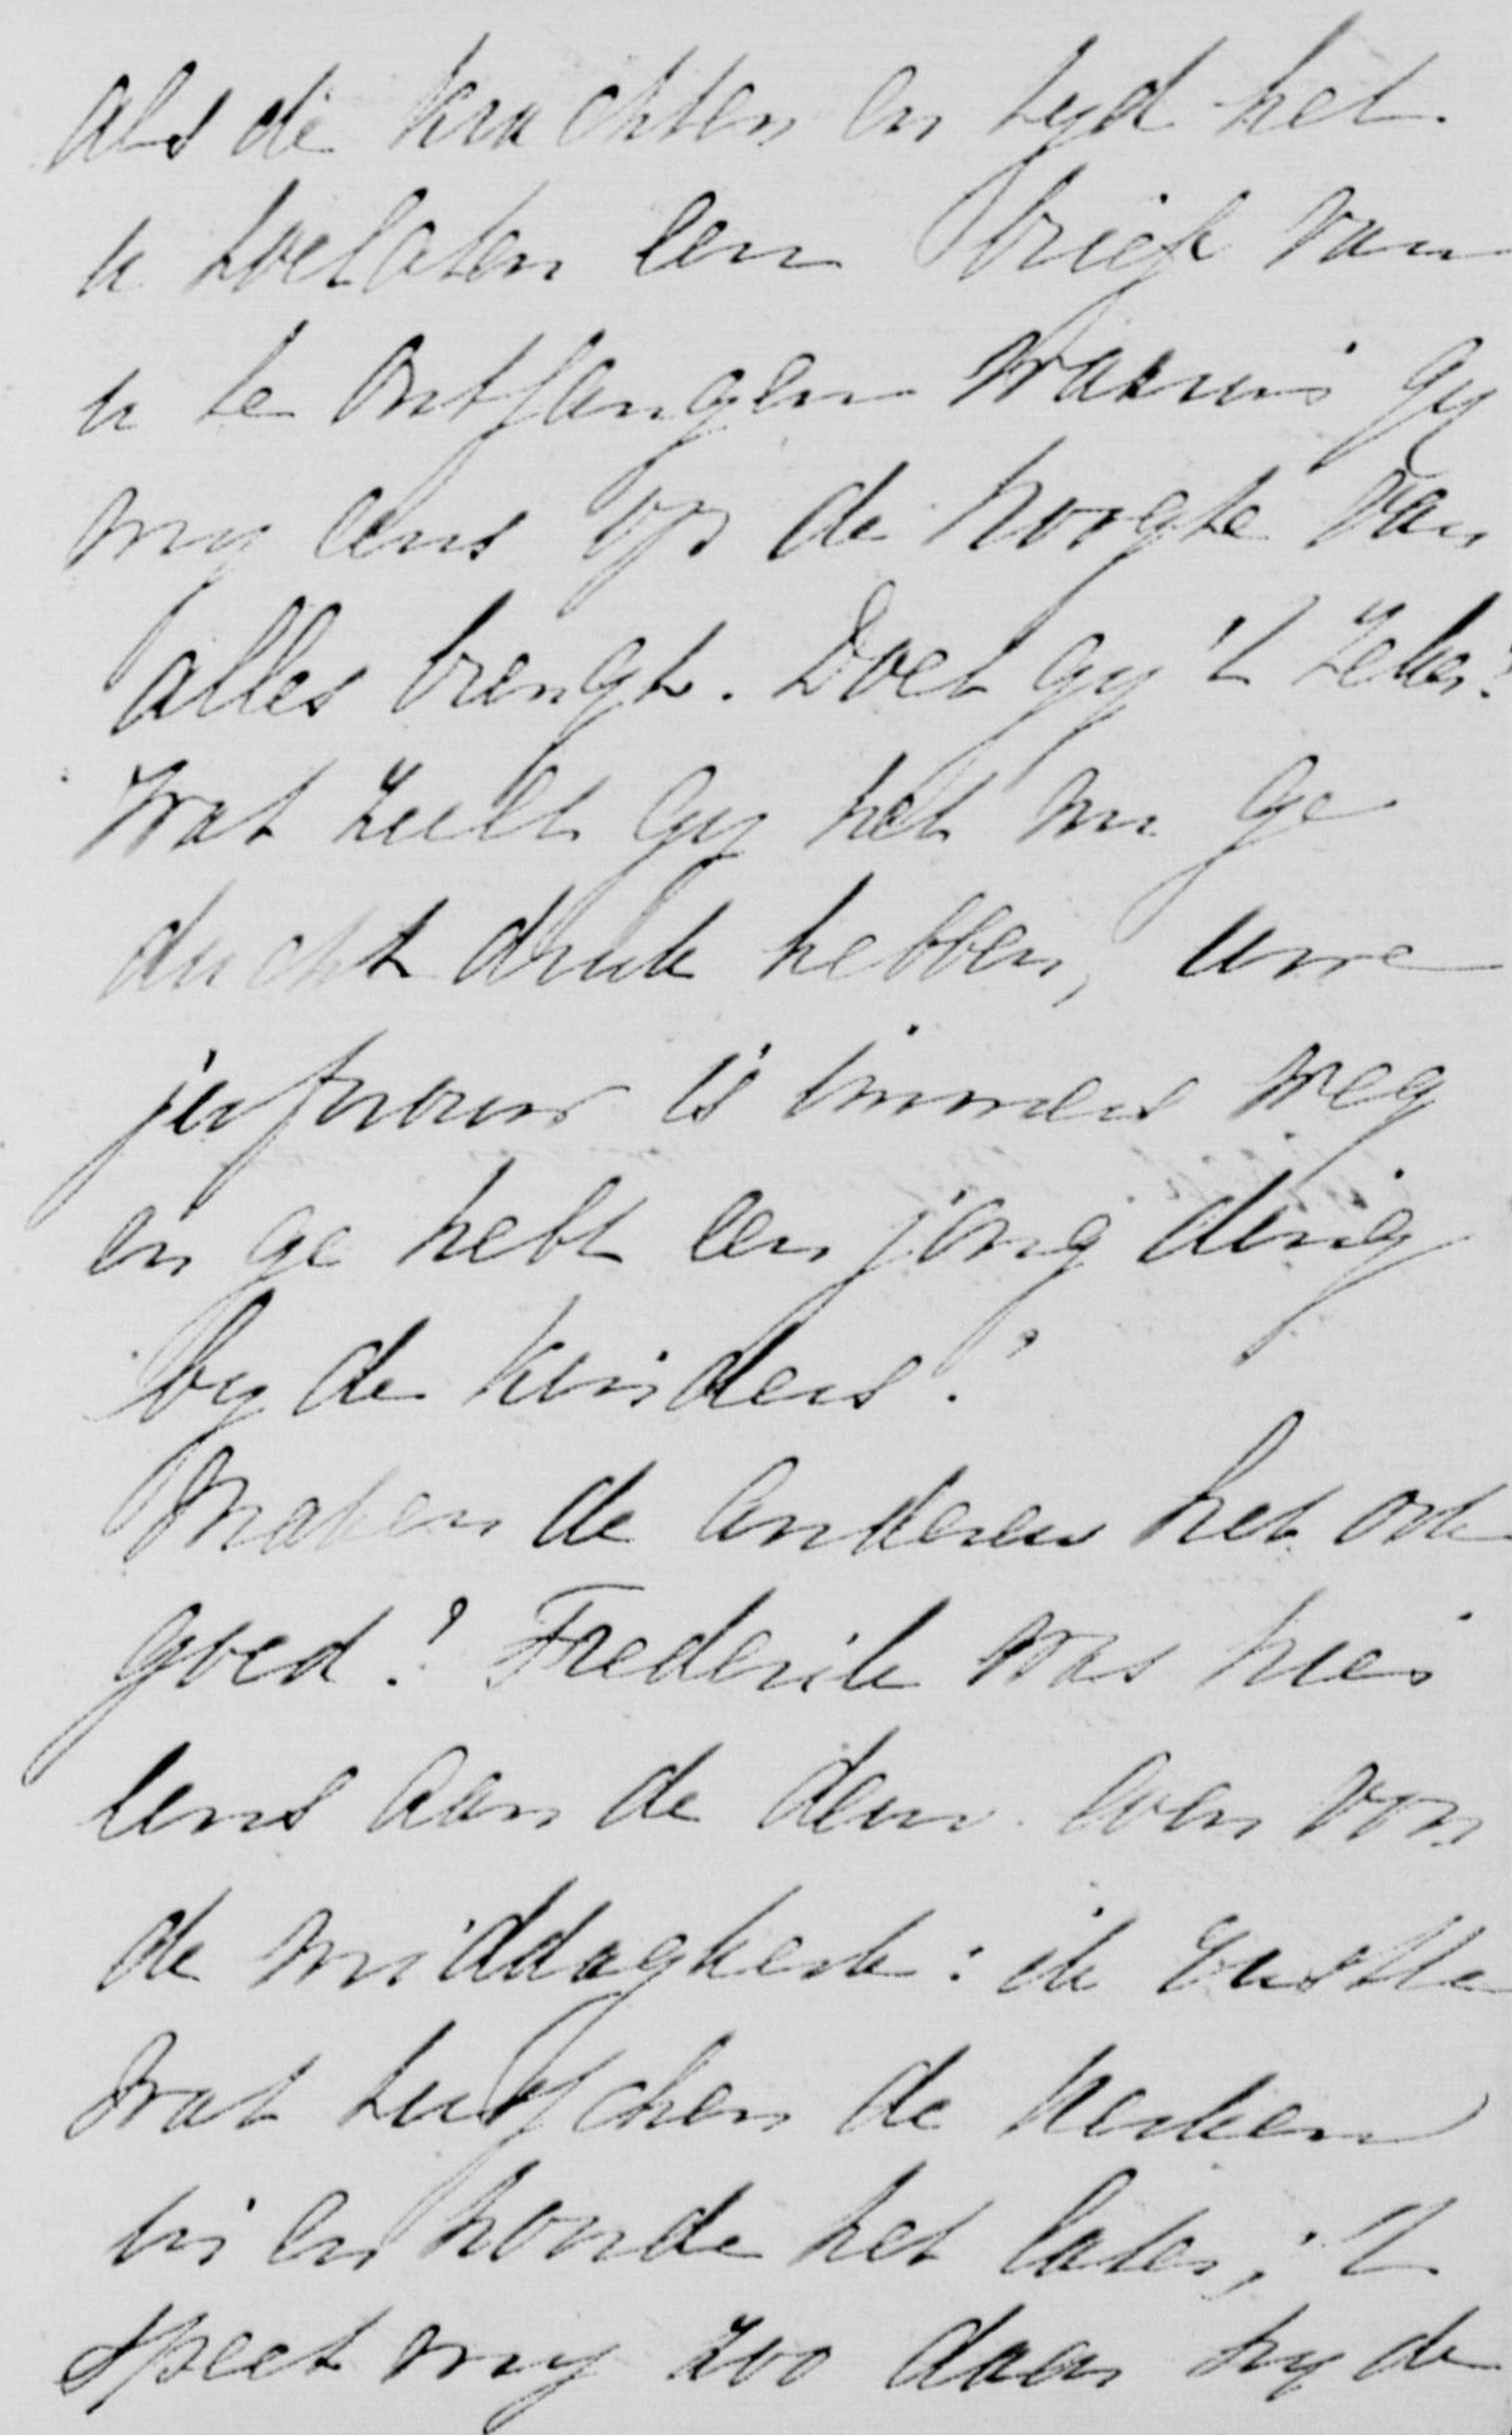 als de krachten en tyd het
u toelaten een brief van
u te ontfangen waarin gy
my eens op de hoogte van
alles brengt. Doet gy 't zeker?
Wat zult gy het nu ge
ducht druk hebben, uwe
juffrouw is immers weg
en ge hebt een jong ding
by de kinders?
Maken de anderen het ook
goed? Frederik was hier
eens aan de deur even voor
de middagkerk: ik rustte
wat tusschen de kerken
in en hoorde het later; 't
speet my zoo daar hy de